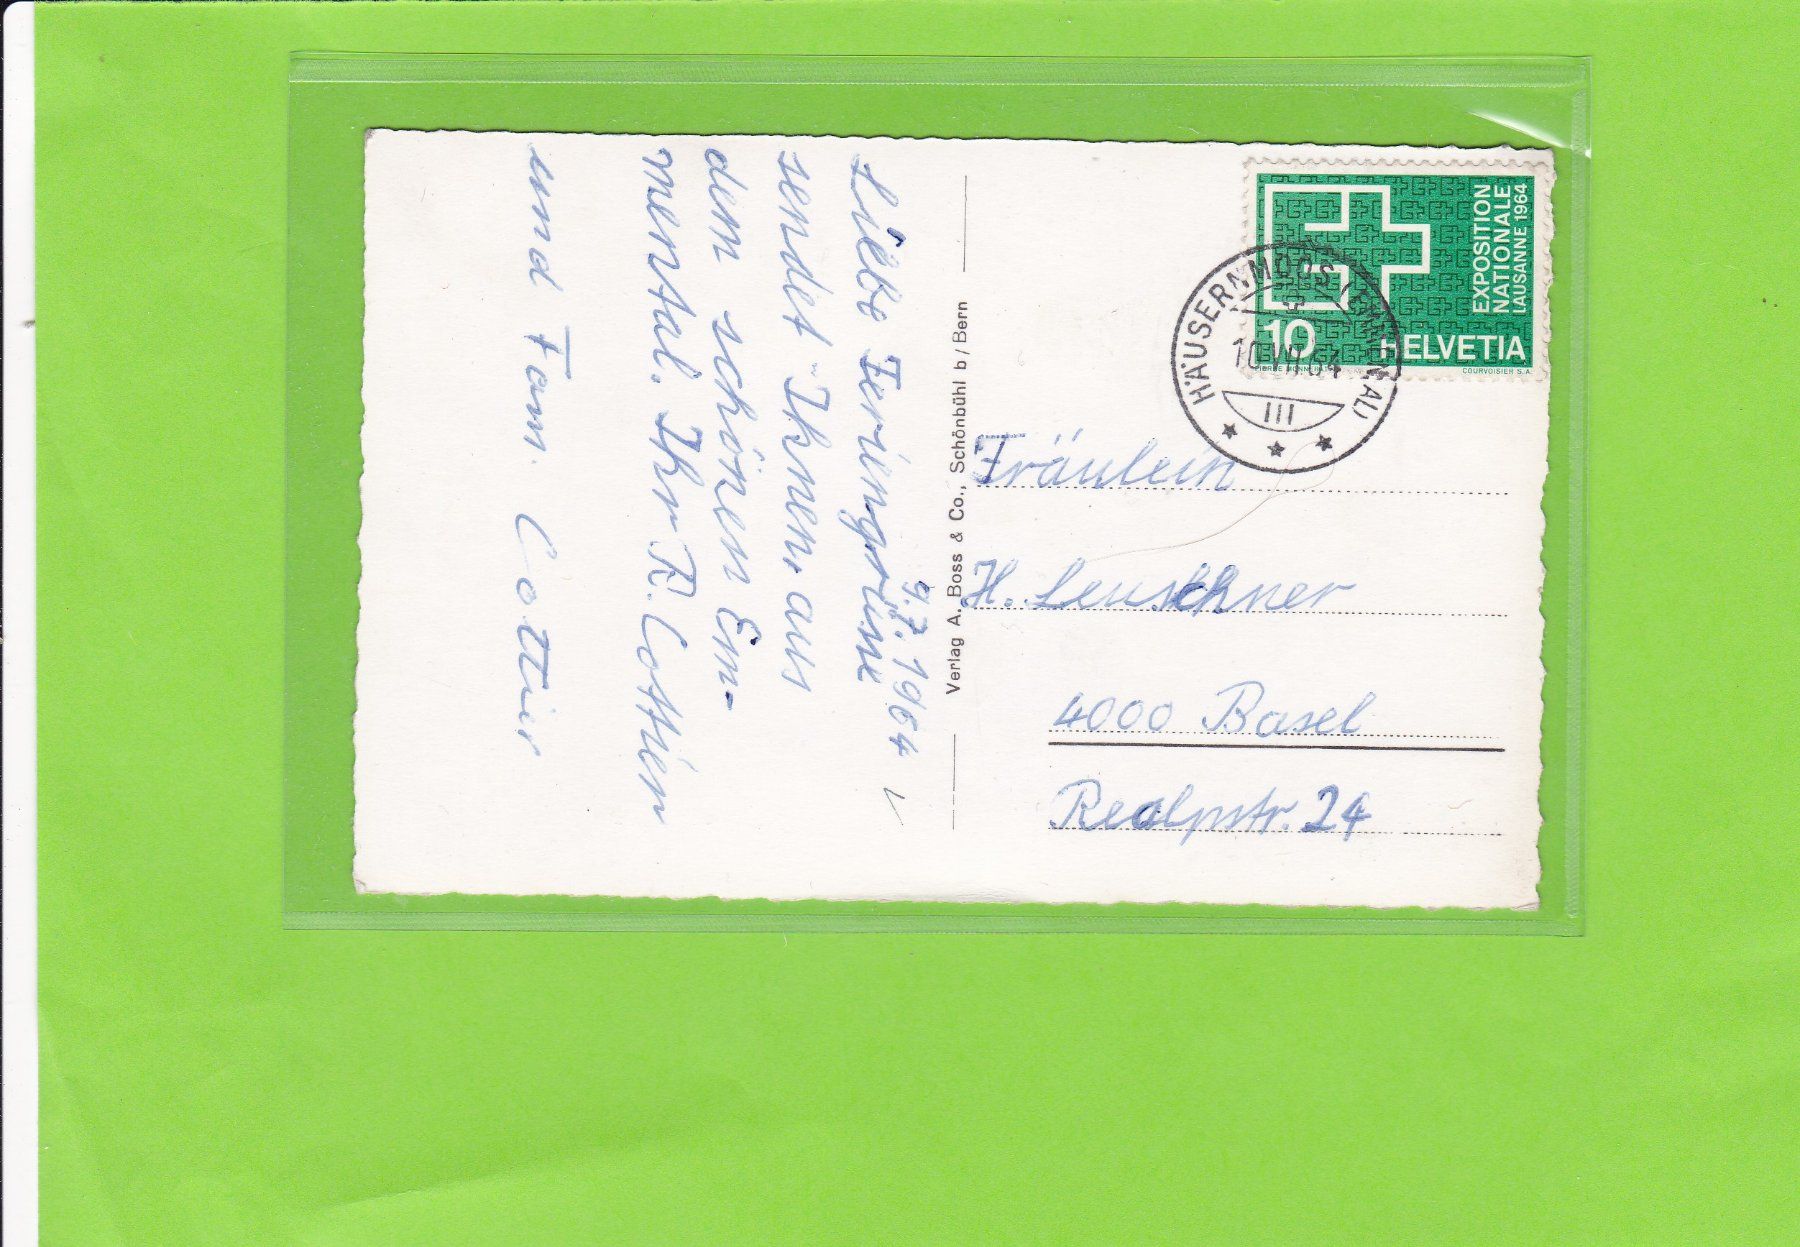 9.7.1964
Liebe Feriengrüsse
sendet Ihnen, aus
dem schönen Em-
mental. Ihr R. Cottier
und Fam. Cottier
Verlag A. Boss & Co., Schönbühl b/Bern
EXPOSITION
NATIONALE
LAUSANNE 1964
10
HELVETIA
COURVOISIER S.A.
HÄUSERNMOOS (EMMENTAL)
10.VII.64
III
Fräulein
H. Leuschner
4000 Basel
Realpstr. 24